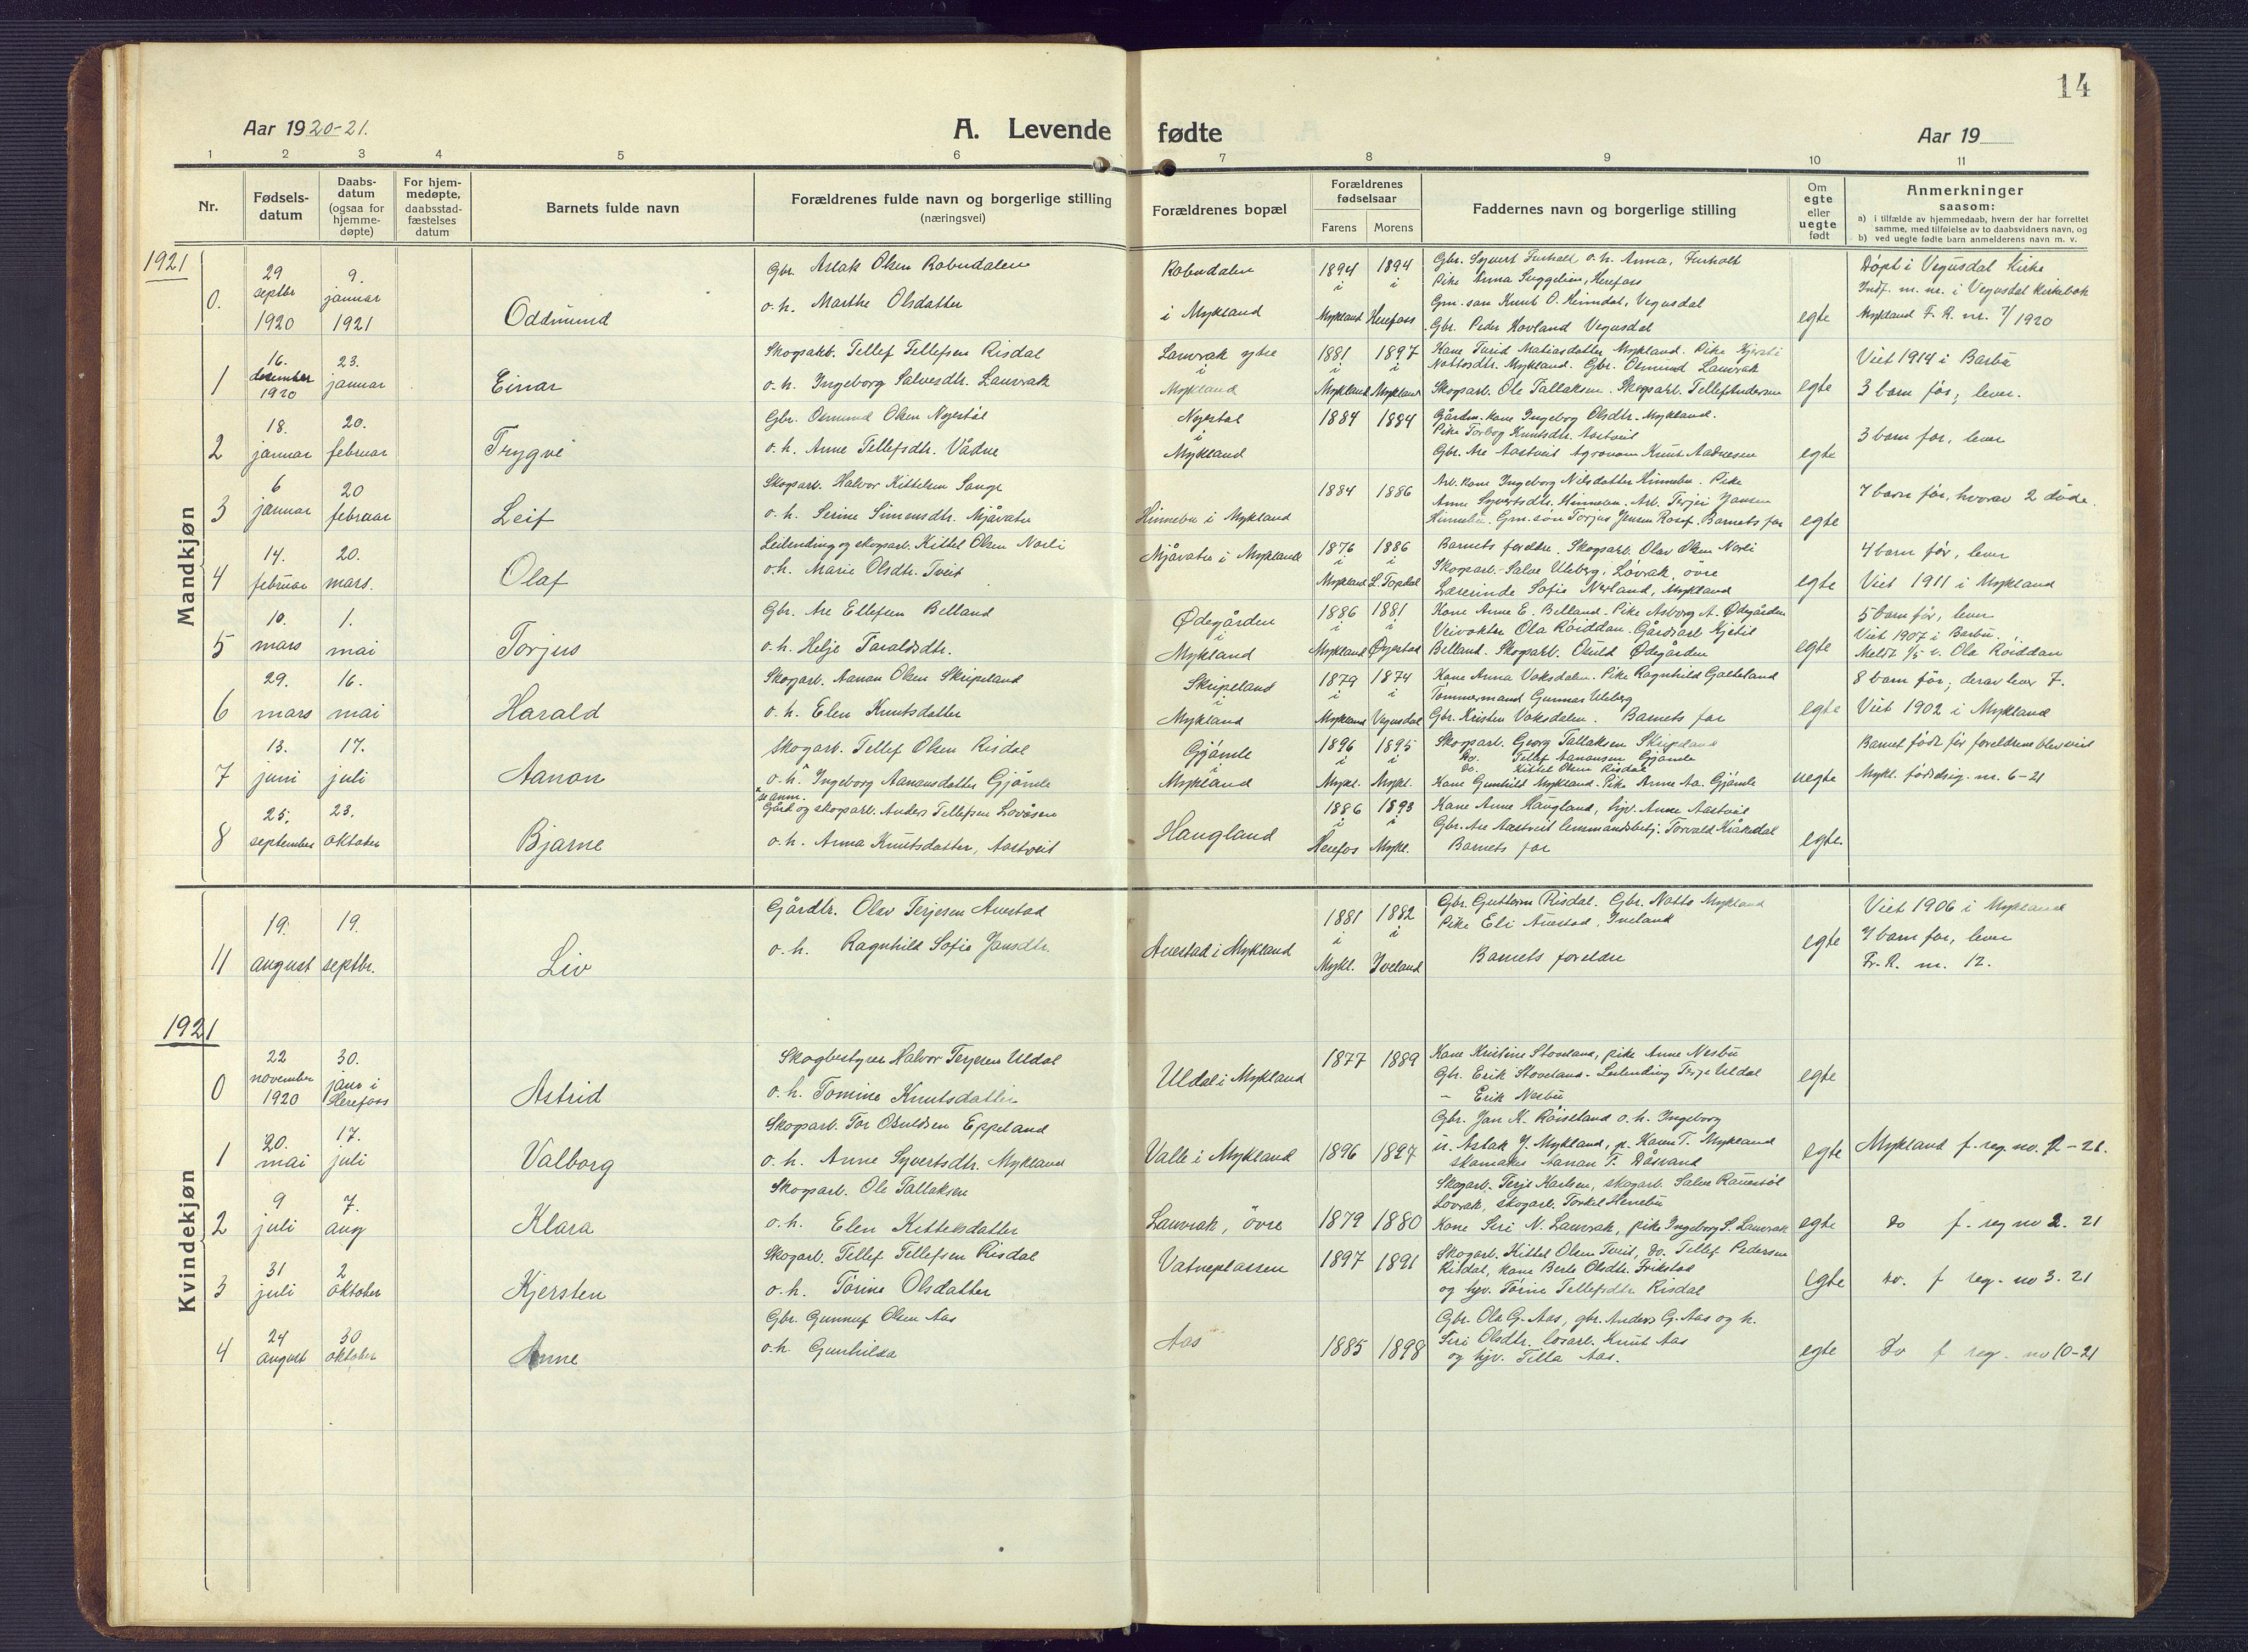 14
Aar 1920-21.
A. Levende fødte
Aar 19
1 2 3 4 5 6 7 8 9 10 11
Nr.
Fødsels-
datum
Daabs-
datum
(ogsaa for
hjemme-
døpte)
For hjem-
medøpte,
daabsstad-
fæstelses
datum
Barnets fulde navn
Forældrenes fulde navn og borgerlige stilling
(næringsvei)
Forældrenes bopæl
Forældrenes
fødselsaar
Farens Morens
Faddernes navn og borgerlige stilling
Om
egte
eller
uegte
født
Anmerkninger
saasom:
a) i tilfælde av hjemmedaab, hvem der har forrettet
samme, med tilføielse av to daabsvidners navn, og
b) ved uegte fødte barn anmelderens navn m. v.
Mandkjøn
1921
0.
29
septbr
1920
9.
januar
1921
Oddmund
Gbr. Aslak Olsen Robudalen
o. h. Marthe Olsdatter
Robudalen
i Mykland
1894 1894
i i
Mykland Herefoss
Gbr. Syvert Furholt o. h. Anna, Furholt
Pike Anna Suggelien, Herefoss
Gm. søn Knut O. Heimdal, Vegusdal
Gbr. Peder Hovland Vegusdal
egte
Døpt i Vegusdal Kirke
Indf. m. nr. i Vegusdal Kirkebok
Mykland F. R. nr. 7/1920
1
16.
desember
1920
23.
januar
Einar
Skogsarb. Tellef Tellefsen Risdal
o. h. Ingeborg Salvesdtr. Lauvrak
Lauvrak ytre
i
Mykland
1881 1897
i i
Mykland Mykland
Kone Turid Matiasdatter Mykland. Pike Kjersti
Nottosdtr. Mykland. Gbr. Osmund Lauvrak
Skogsarb. Ole Tallaksen. Skogsarb. Tellef Andersen
egte
Viet 1914 i Barbu
3 barn før, lever.
2
18.
januar
20.
februar
Trygve
Gbr. Osmund Olsen Nyestøl
o. h. Anne Tellefsdtr. Vådne
Nyestøl
i
Mykland
1884 1884
Gårdm. kone Ingeborg Olsdtr. Mykland.
Pike Torbog Knutsdtr. Aastveit
Gbr. Are Aastveit Agronom Knut Aadnesen
egte
3 barn før, lever
3
6
januar
20
februar
Leif
Skogsarb. Halvor Kittelsen Sauge
o. h. Serine Simensdtr. Mjåvatn
Hinnebu i Mykland
1884 1886
Arb. kone Ingeborg Nilsdatter Hinnebu. Pike
Anne Syvertsdtr. Hinnebu. Arb. Terjei Jansen
Hinnebu. Gm. søn Torjus Jensen. Barnets far
egte
7 barn før, hvorav 2 døde.
4
14.
februar
20.
mars.
Olaf
Leilending og skogsarb. Kittel Olsen Norli
o. h. Marie Olsdtr. Tveit
Mjåvatn i Mykland
1876 1886
i i
Mykland L. Topdal
Barnets foreldre. Skogsarb. Olav Olsen Norli
Skogsarb. Salve Uleberg, Løvrak, övre
Lærerinde Sofie Nerland, Mykland
egte
4 barn før, lever
Viet 1911 i Mykland
5
10.
mars
1.
mai
Torjus
Gbr. Are Ellefsen Belland
o. h. Helje Taraldsdtr.
Ødegården
i
Mykland
1886 1881
i i
Mykland Øyestad
Kone Anne E. Belland. Pike Asborg A. Ødegården
Veivokter Ola Røiddan. Gårdsarb Kjetil
Belland. Skogsarb. Osuld Ødegården
egte
5 barn før, lever
Viet 1907 i Barbu.
Meldt 1/5 v. Ola Röiddan
6
29.
mars
16.
mai
Harald
Skogarb. Aanon Olsen Skripeland
o. h. Elen Knutsdatter
Skripeland
i
Mykland
1879 1874
i i
Mykland Vegusdal
Kone Anna Voksdalen. Pike Ragnhild Galteland
Tømmermand Gunnar Uleberg
Gbr. Kristen Voksdalen. Barnets far
egte
8 barn før, derav lever 7.
Viet 1902 i Mykland
7
13.
juni
17.
juli
Aanon
Skogarb. Tellef Olsen Risdal
o. h. x Ingeborg Aanonsdatter Gjømle
x se anm.
Gjømle
i
Mykland
1896 1895
i i
Mykl. Mykl.
Skogsarb. Georg Tallaksen Skripeland
Do. Tellef Aanonsen Gjømle
do. Kittel Olsen Risdal
Kone Gunhild Mykland. Pike Anne Aa. Gjømle
uegte
Barnet född för foreldrene blev viet
Mykl. fødselsrig. nr. 6-21
8
25.
september
23.
oktober
Bjarne
Gård og skogsarb. Anders Tellefsen Lövåsen
o. h. Anna Knutsdatter, Aastveit
Haugland
1886 1893
i i
Herefos Mykl.
Kone Anne Haugland, hjv. Anne Aastveit
Gbr. Are Aastveit lensmandsbetj. Torvald Kråkedal
Barnets far
egte.
Kvindekjøn
11
19.
august
19.
septbr.
Liv
Gårdbr. Olav Terjesen Auestad
o. h. Ragnhild Sofie Jansdtr.
Auestad i Mykland
1881 1882
i i
Mykl. Iveland
Gbr. Guttorm Risdal. Gbr. Notto Mykland
Pike Eli Auestad, Iveland
Barnets foreldre
egte
Viet 1906 i Mykland
7 barn før, lever
Fr. R. nr. 12.
1921
0
22
november
1920
30.
janr i
Herefoss
Astrid
Skogbestyrer Halvor Terjesen Uldal
o. h. Tomine Knutsdatter
Uldal i Mykland
1877 1889
Kone Kristine Stoveland, pike Anne Nesbu
Gbr. Erik Stoveland. Leilending Terje Uldal
– Erik Nesbu
egte
1
20.
mai
17.
juli
Valborg
Skogsarb. Tor Osuldsen Eppeland
o. h. Anne Syvertsdtr. Mykland
Valle i Mykland
1896 1897
Gbr. Jan K. Röiseland o. h. Ingeborg
u. Aslak J. Mykland, p. Karen T. Mykland
skomaker Aanon T. Dåsvand
egte
Mykland f. reg. no. 2-21.
2
9
juli
7.
aug
Klara
Skogsarb. Ole Tallaksen
o. h. Elen Kittelsdatter
Lauvrak, övre
1879 1880
Skogarb. Terje Karlsen, skogarb. Salve Rauestöl
Lovrak, skogarb. Torkel Hinnebu
Kone Siri N. Lauvrak, pike Ingeborg S. Lauvrak
egte
do f. reg no 2. 21
3
31
juli
2
oktober
Kjersten
Skogarb. Tellef Tellefsen Risdal
o. h. Torine Olsdatter
Vatneplassen
1897 1891
Skogarb. Kittel Olsen Tveit, do. Tellef Pedersen
Risdal, kone Berte Olsdtr. Frikstad
og hjv. Torine Tellefsdtr Risdal
egte
do. f reg. no 3. 21
4
24
august
30
oktober
Anne
Gbr. Gunnuf Olsen Aas
o. h. Gunhilda
Aas
1885 1898
Gbr. Ola G. Aas, gbr. Anders G. Aas og h.
Siri Olsdtr. losarb. Knut Aas
og hjv. Tilla Aas.
egte
do f reg. no 10-21